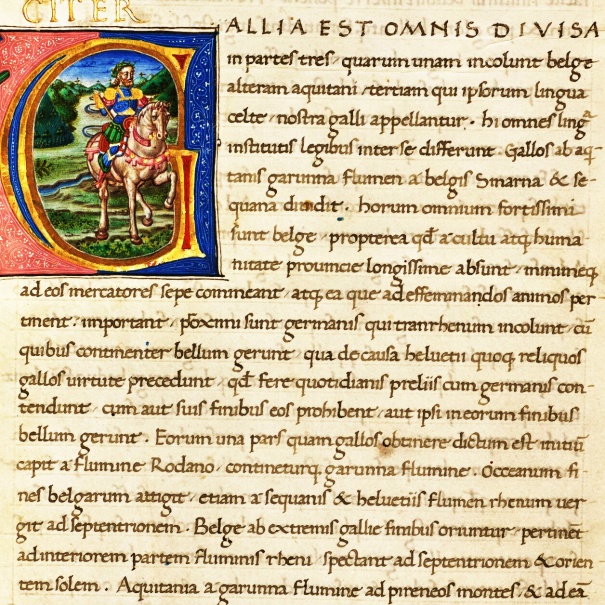 CITER
GALLIA EST OMNIS DIVISA
in partes tres, quarum unam incolunt belge
alteram aquitani, tertiam qui ipsorum lingua
celte, nostra galli appellantur. hi omnes lingᵃ
institutis legibus inter se differunt. Gallos ab aq-
tanis garunna flumen a belgis Smarna & se-
quana diuidit. horum omnium fortissimi
sunt belge, propterea qđ a cultu atq, huma
nitate prouincie longissime absunt, minimeq,
ad eos mercatores sepe commeant, atq, ea que ad effeminandos animos per
tinent, important, ꝓximi sunt germanis qui tranrhenum incolunt, cū
quibus continenter bellum gerunt, qua de causa heluetii quoq, reliquos
gallos uirtute precedunt, qđ fere quotidianis preliis cum germanis con-
tendunt, cum aut suis finibus eos prohibent, aut ipsi in eorum finibus
bellum gerunt. Eorum una pars quam gallos obtinere dictum est initiū
capit a flumine Rodano, contineturq, garunna flumine. Occeanum fi-
nes belgarum attigit, etiam a sequanis & heluetiis flumen rhenum uer
git ad septentrionem. Belge ab extremis gallie finibus oriuntur, pertinēt
ad interiorem partem fluminis rheni spectant ad septentrionem & orien
tem solem. Aquitania a garunna flumine ad pireneos montes, & ad eā